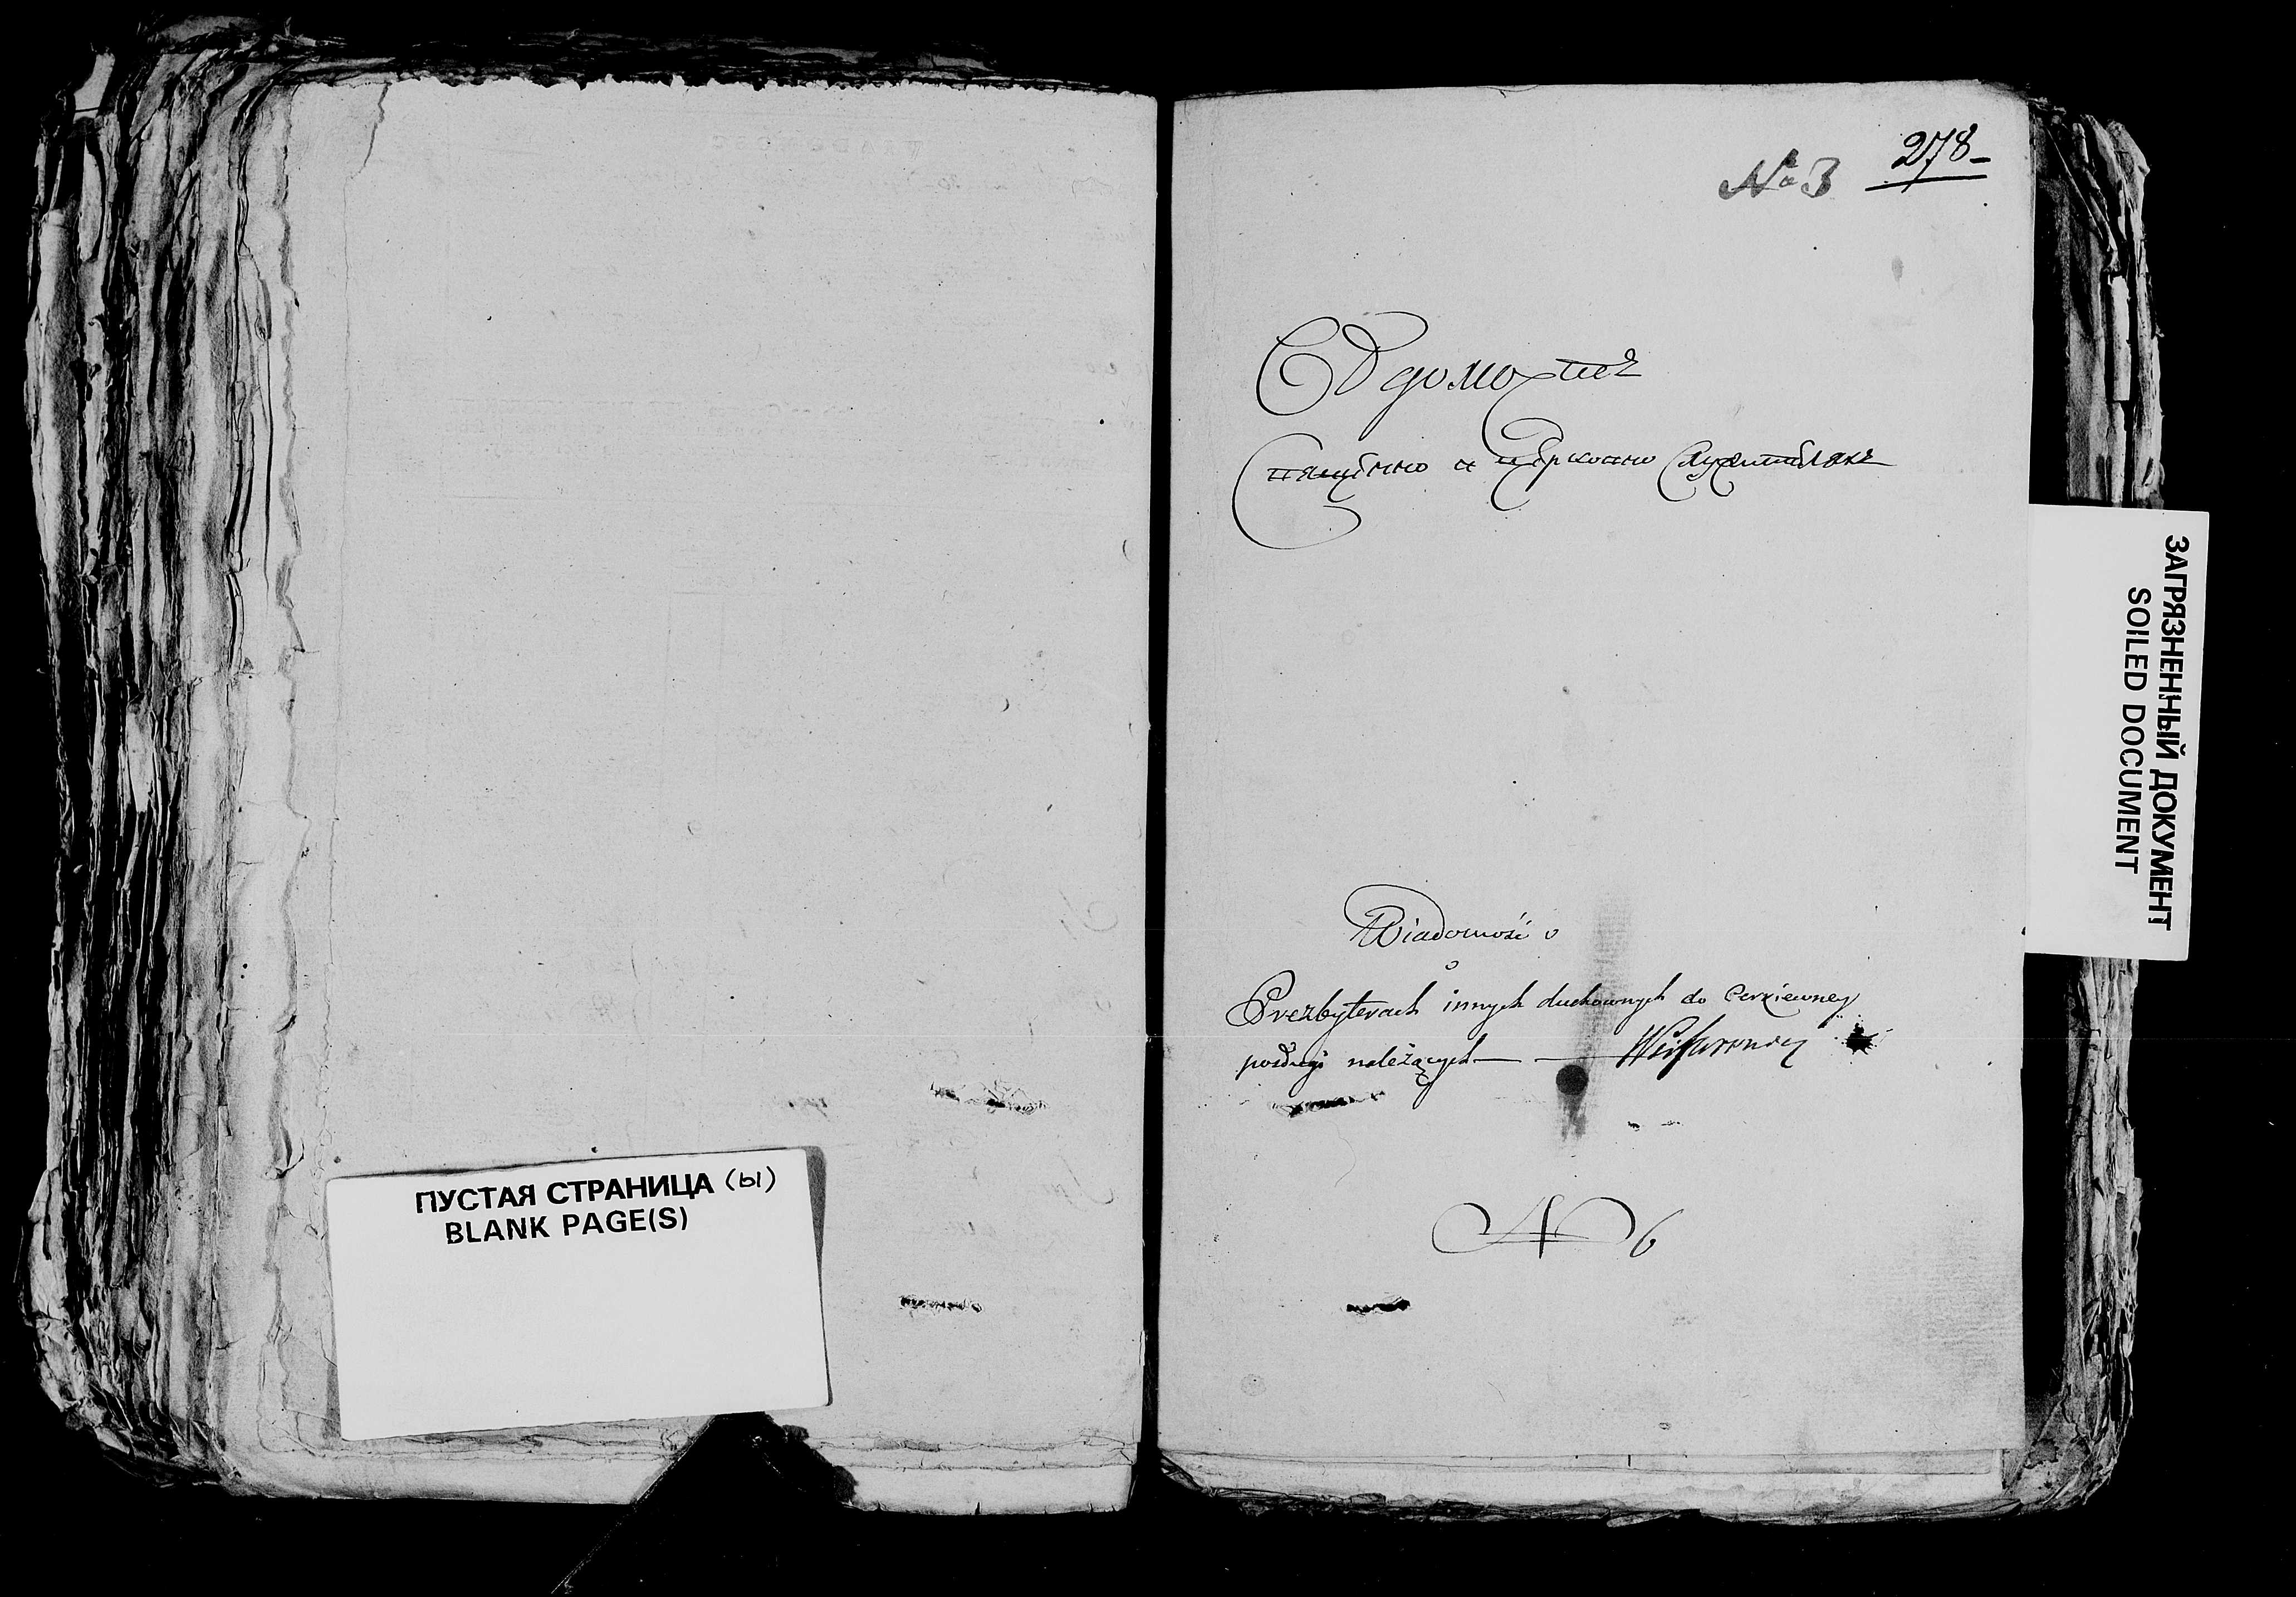 ПУСТАЯ СТРАНИЦА (Ы)
BLANK PAGE(S)
№ 3 278
Священно и церковно служителяхъ
Wiadomość o
Prezbyterach innych duchownych do Cerkiewney
posługi należących
N 6
ЗАГРЯЗНЕННЫЙ ДОКУМЕНТ
SOILED DOCUMENT